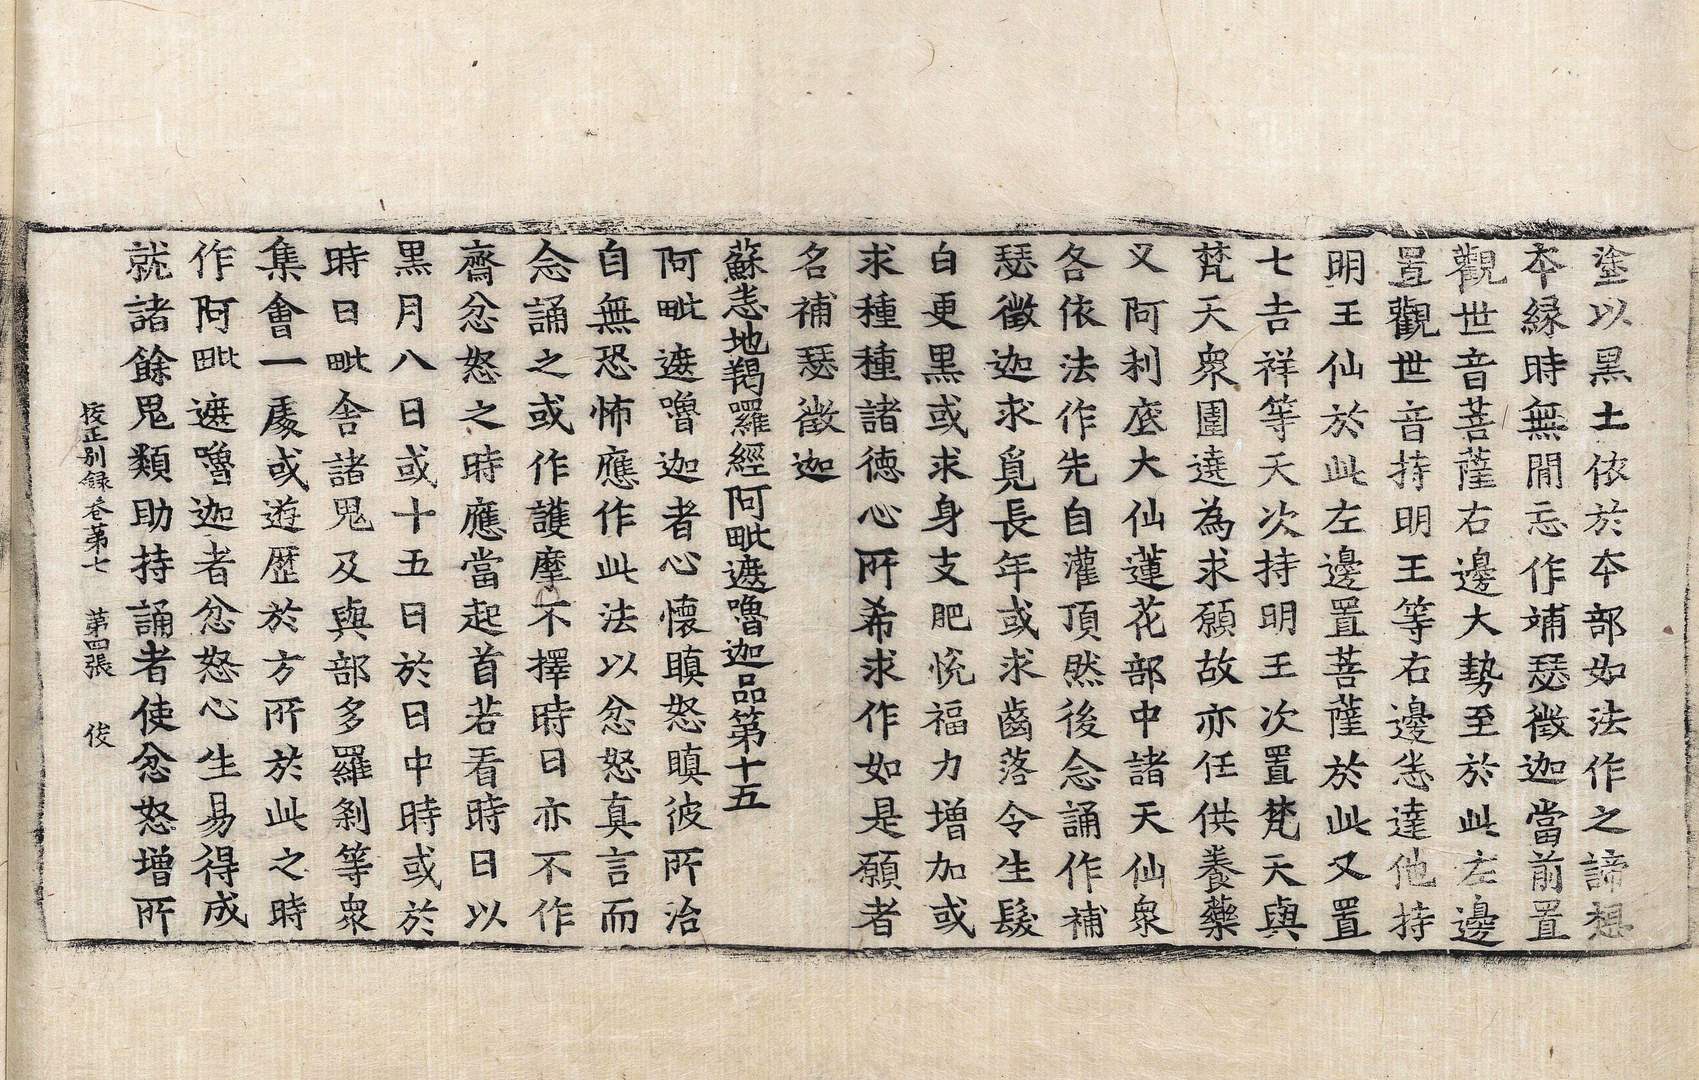 塗以黑土依於本部如法作之諦想
本緣時無閒忘作補瑟徵迦當前置
觀世音菩薩右邊大勢至於此左邊
置觀世音持明王等右邊悉達他持
明王仙於此左邊置菩薩於此又置
七吉祥等天次持明王次置梵天與
梵天衆圍遶為求願故亦任供養藥
叉阿利底大仙蓮花部中諸天仙衆
各依法作先自灌頂然後念誦作補
瑟徵迦求覓長年或求齒落令生髮
白更黑或求身支肥悅福力增加或
求種種諸德心所希求作如是願者
名補瑟徵迦
蘇悉地羯囉經阿毗遮嚕迦品第十五
阿毗遮嚕迦者心懷瞋怒瞋彼所治
自無恐怖應作此法以忿怒真言而
念誦之或作護摩不擇時日亦不作
齋忿怒之時應當起首若看時日以
黑月八日或十五日於日中時或於
時日毗舍諸鬼及與部多羅剎等衆
集會一處或遊歷於方所於此之時
作阿毗遮嚕迦者忿怒心生易得成
就諸餘鬼類助持誦者使忿怒增所
校正別錄卷第七　第四張　俊